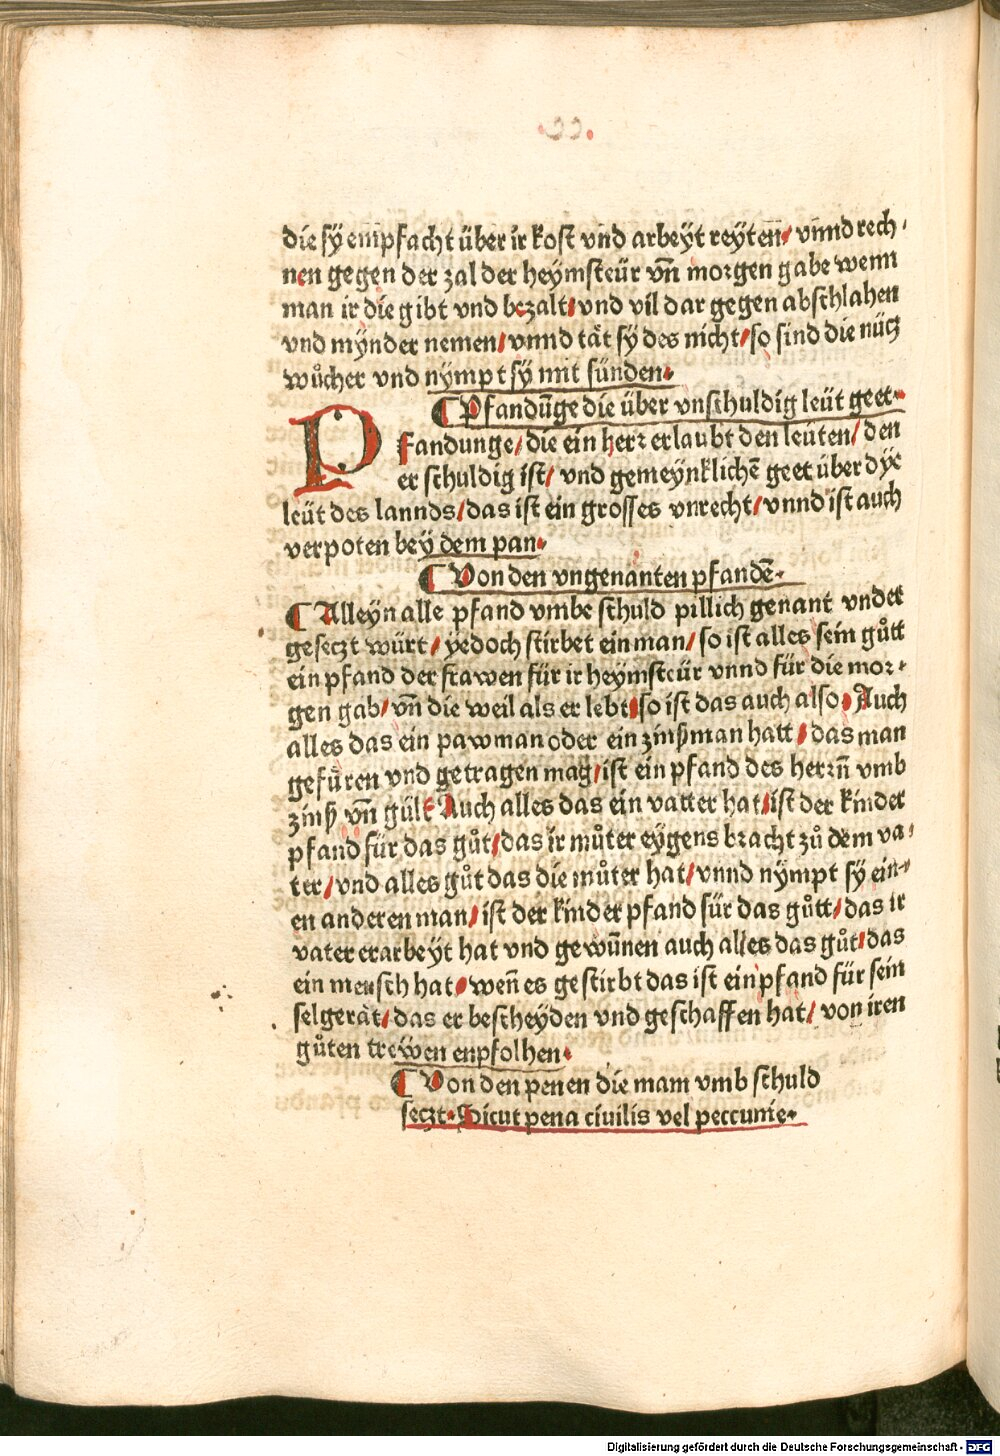 die sy empfacht über ir kost vnd arbeyt reyten/ vnnd rech⸗
nen gegen der zal der heymsteür vn̄ morgen gabe wenn
man ir die gibt vnd bezalt/vnd vil dar gegen abschlahen
vnd mynder nemen/vnnd tät sy des nicht/so sind die nücz
wůcher vnd nympt sy mit sünden.
¶ Pfandūge die über vnschuldig leüt geet.
Pfandunge/die ein herr erlaubt den leüten/den
er schuldig ist/ vnd gemeynklichē geet über dye
leüt des lannds/das ist ein grosses vnrecht/vnnd ist auch
verpoten bey dem pan.
¶ Von den vngenanten pfandē.
¶ Alleyn alle pfand vmbe schuld pillich genant vnder
geseczt würt/ yedoch stirbet ein man/so ist alles sein gůtt
ein pfand der frawen für ir heymsteür vnnd für die mor⸗
gen gab/vn̄ die weil als er lebt/so ist das auch also. Auch
alles das ein pawman oder ein zinßman hatt/das man
gefüren vnd getragen mag/ist ein pfand des herrn̄ vmb
zinß vn̄ gült Auch alles das ein vatter hat/ist der kinder
pfand für das gůt/das ir můter eygens bracht zů dem va⸗
ter/vnd alles gůt das die můter hat/vnnd nympt sy ein⸗
en anderen man/ist der kinder pfand für das gůtt/das ir
vater erarbeyt hat vnd gewūnen auch alles das gůt/das
ein mensch hat.wen̄ es gestirbt das ist ein pfand für sein
selgerät/das er bescheyden vnd geschaffen hat/ von iren
gůten trewen enpfolhen.
¶ Von den penen die mam vmb schuld
seczt. Sicut pena civilis vel peccunie.
Digitalisierung gefördert durch die Deutsche Forschungsgemeinschaft - DFG